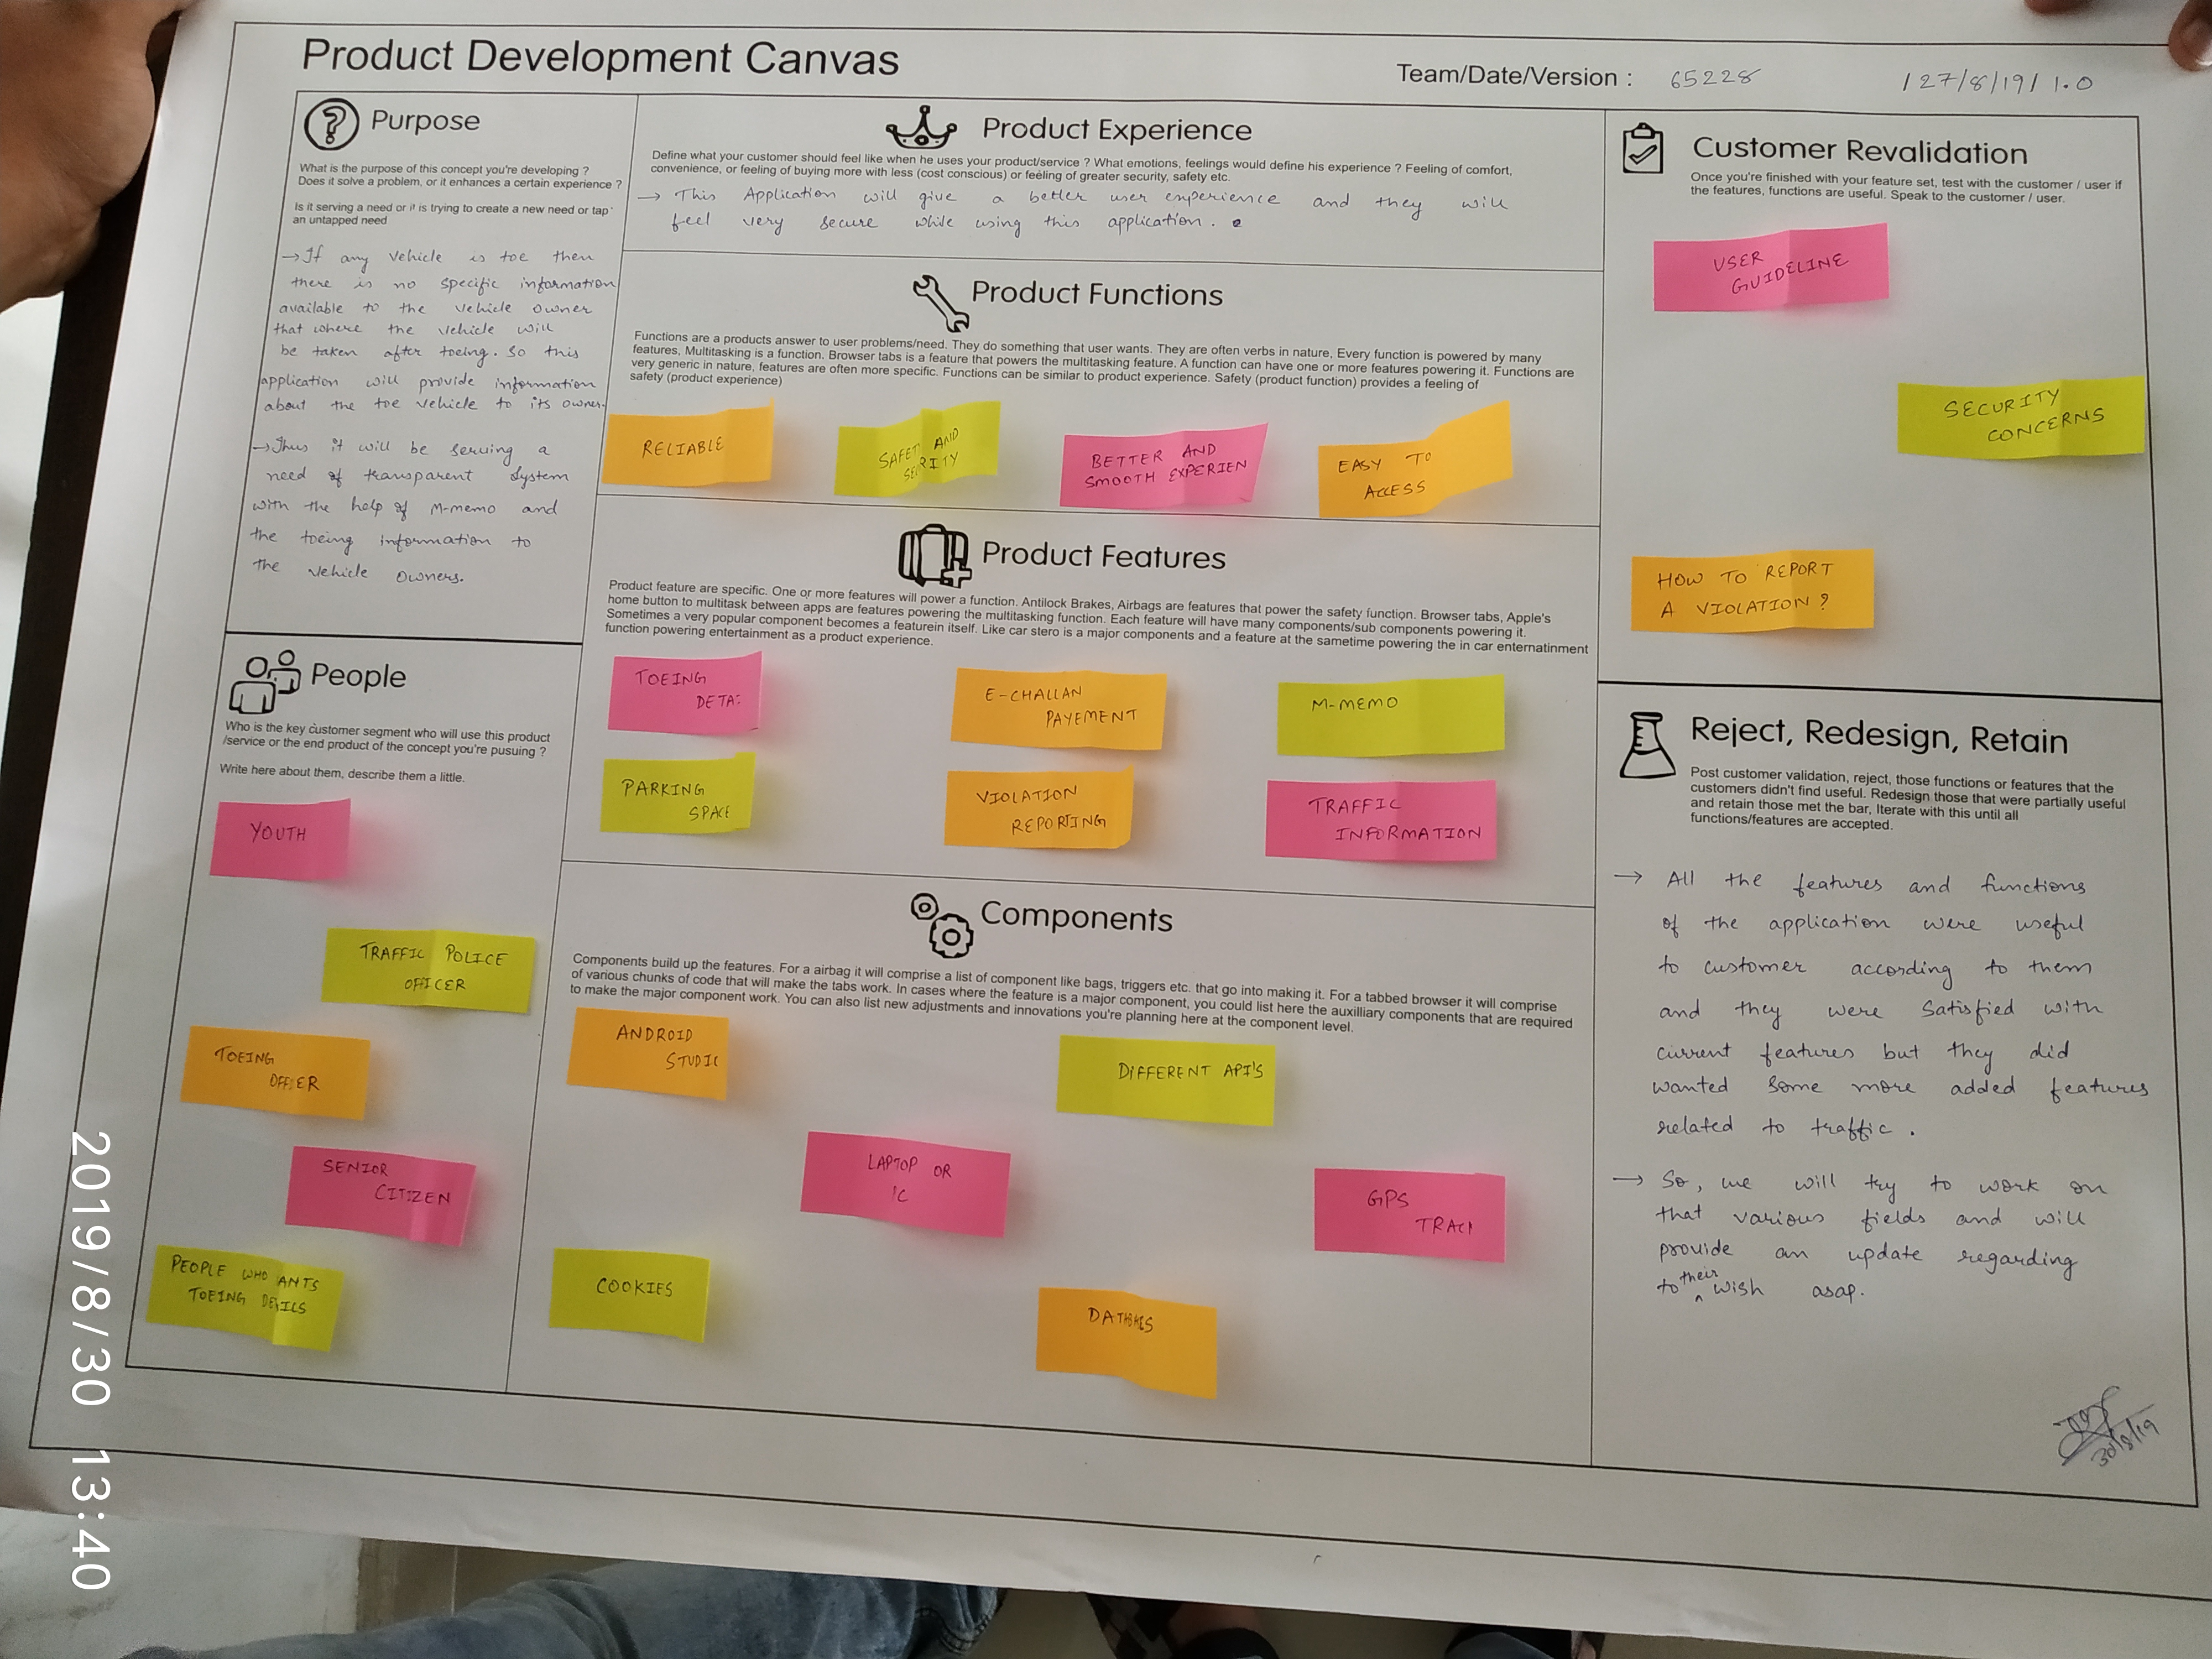 Product Development Canvas
Team/Date/Version : 65228 / 27/8/19 / 1.0
Purpose
What is the purpose of this concept you're developing ?
Does it solve a problem, or it enhances a certain experience ?
Is it serving a need or it is trying to create a new need or tap
an untapped need
→ If any vehicle is toe then
there is no specific information
available to the vehicle owner
that where the vehicle will
be taken after toeing. So this
application will provide information
about the toe vehicle to its owner.
→ Thus it will be serving a
need of transparent system
with the help of M-memo and
the toeing information to
the vehicle owners.
People
Who is the key customer segment who will use this product
/service or the end product of the concept you're pusuing ?
Write here about them, describe them a little.
YOUTH
TRAFFIC POLICE
OFFICER
TOEING
OFFICER
SENIOR
CITIZEN
PEOPLE WHO ANTS
TOEING
Product Experience
Define what your customer should feel like when he uses your product/service ? What emotions, feelings would define his experience ? Feeling of comfort,
convenience, or feeling of buying more with less (cost conscious) or feeling of greater security, safety etc.
→ This Application will give a better user experience and they will
feel very secure while using this application.
Product Functions
Functions are a products answer to user problems/need. They do something that user wants. They are often verbs in nature, Every function is powered by many
features, Multitasking is a function. Browser tabs is a feature that powers the multitasking feature. A function can have one or more features powering it. Functions are
very generic in nature, features are often more specific. Functions can be similar to product experience. Safety (product function) provides a feeling of
safety (product experience)
RELIABLE
SAFET AND
SE RITY
BETTER AND
SMOOTH EXPERIEN
EASY TO
ACCESS
Product Features
Product feature are specific. One or more features will power a function. Antilock Brakes, Airbags are features that power the safety function. Browser tabs, Apple's
home button to multitask between apps are features powering the multitasking function. Each feature will have many components/sub components powering it.
Sometimes a very popular component becomes a featurein itself. Like car stero is a major components and a feature at the sametime powering the in car enternatinment
function powering entertainment as a product experience.
TOEING
DETA
E-CHALLAN
PAYEMENT
M-MEMO
PARKING
SPACE
VIOLATION
REPORTING
TRAFFIC
INFORMATION
Components
Components build up the features. For a airbag it will comprise a list of component like bags, triggers etc. that go into making it. For a tabbed browser it will comprise
of various chunks of code that will make the tabs work. In cases where the feature is a major component, you could list here the auxilliary components that are required
to make the major component work. You can also list new adjustments and innovations you're planning here at the component level.
ANDROID
STUDIO
DIFFERENT API'S
LAPTOP OR
GPS
TRAC
COOKIES
Customer Revalidation
Once you're finished with your feature set, test with the customer / user if
the features, functions are useful. Speak to the customer / user.
USER
GUIDELINE
SECURITY
CONCERNS
HOW TO REPORT
A VIOLATION ?
Reject, Redesign, Retain
Post customer validation, reject, those functions or features that the
customers didn't find useful. Redesign those that were partially useful
and retain those met the bar, Iterate with this until all
functions/features are accepted.
→ All the features and functions
of the application were useful
to customer according to them
and they were satisfied with
current features but they did
wanted some more added features
related to traffic.
→ So, we will try to work on
that various fields and will
provide an update regarding
to their wish asap.
30/8/19
2019/8/30 13:40